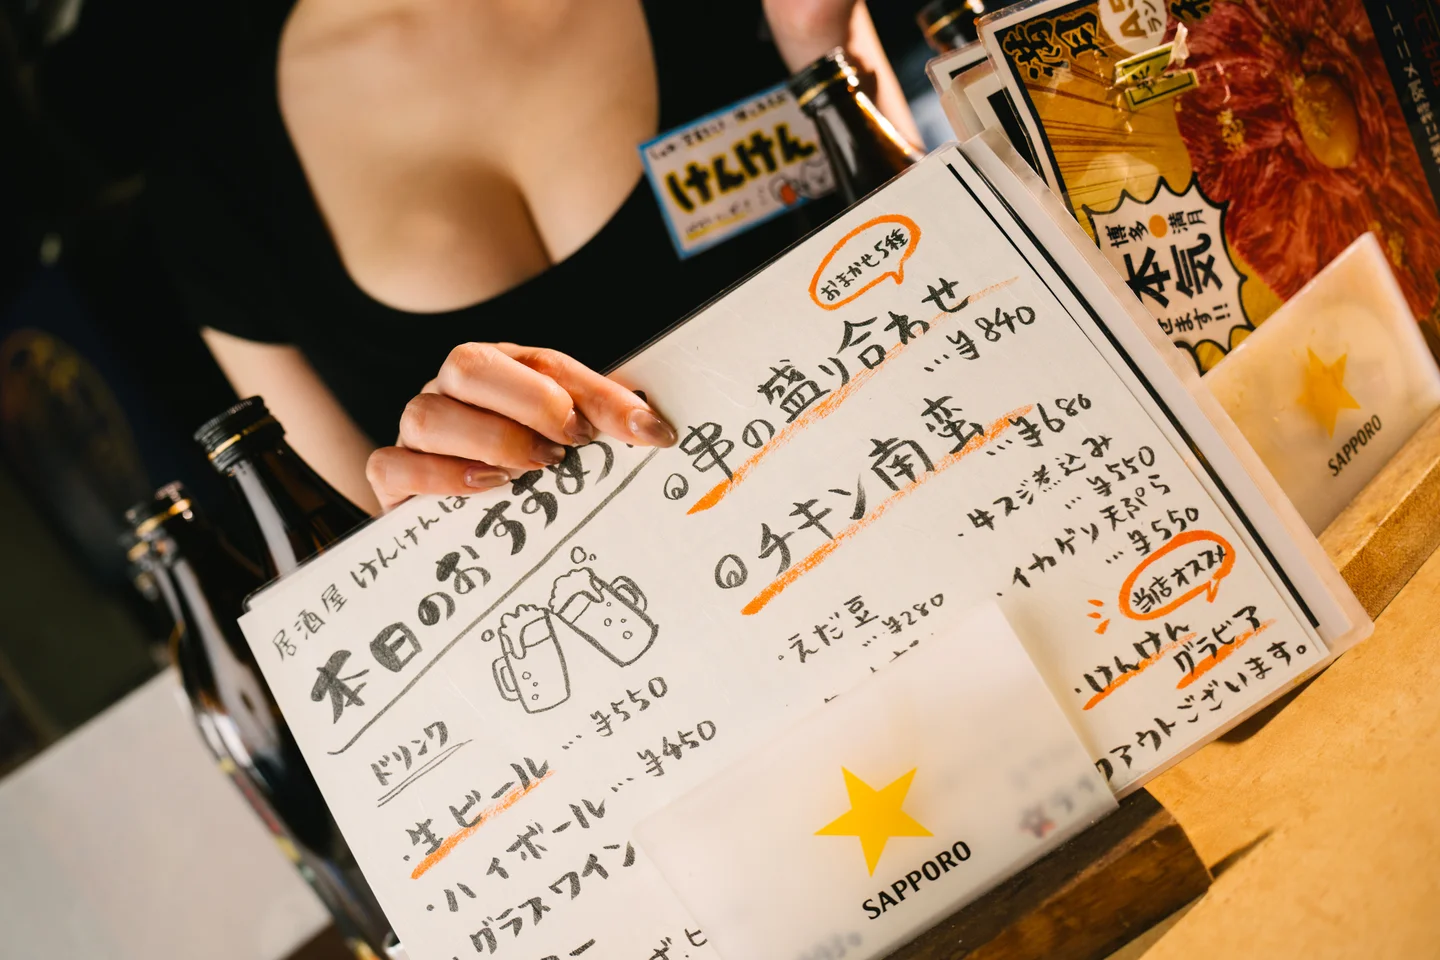 居酒屋 けんけんは
本日のおすすめ
ドリンク
・生ビール … ¥550
・ハイボール … ¥450
・グラスワイン
おまかせ5種
◎串の盛り合わせ
… ¥840
◎チキン南蛮
… ¥680
・牛スジ煮込み
… ¥550
・イカゲソ天ぷら
… ¥550
・えだ豆
… ¥280
当店オススメ
・けんけん
グラビア
アウトございます。
SAPPORO
けんけん
満月
博多 満月
本気
てます!!
SAPPORO